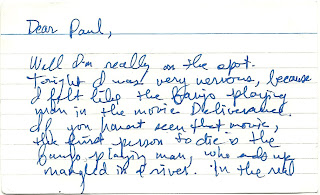 Dear Paul,
Well I'm really on the spot.
Tonight I was very nervous, because
I felt like the banjo playing
man in the movie Deliverance.
If you havent seen that movie,
the first person to die is the
banjo playing man, who ends up
mangled in a river. In the real